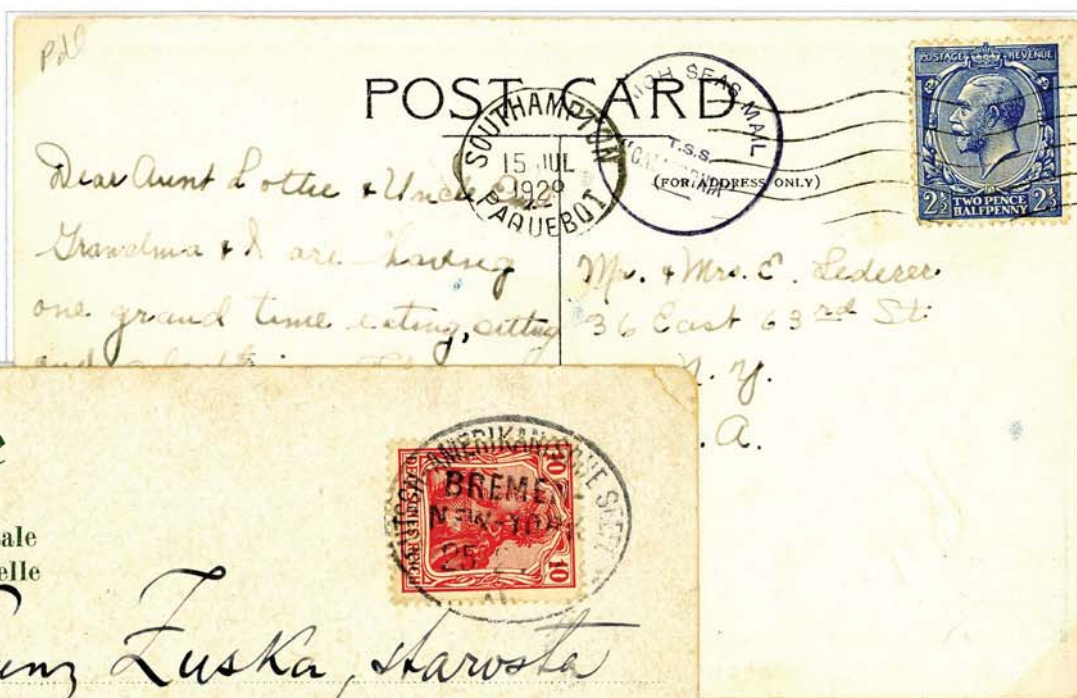 Pd
POST CARD
SOUTHAMPTON
15 JUL
PAQUEBOT
HIGH SEAS MAIL
T.S.S.
(FOR ADDRESS ONLY)
POSTAGE REVENUE
2½ TWO PENCE HALFPENNY 2½
Dear Aunt Lottie + Uncle
Grandma + I are having
one grand time eating, sitting
and
Mr. + Mrs. E. Lederer
36 East 63rd St.
N. Y.
. A.
AMERIKANISCHE SEE
BREMEN
NEW-YORK
25
DEUTSCHES REICH
10 10
ale
elle
Zuska, starosta